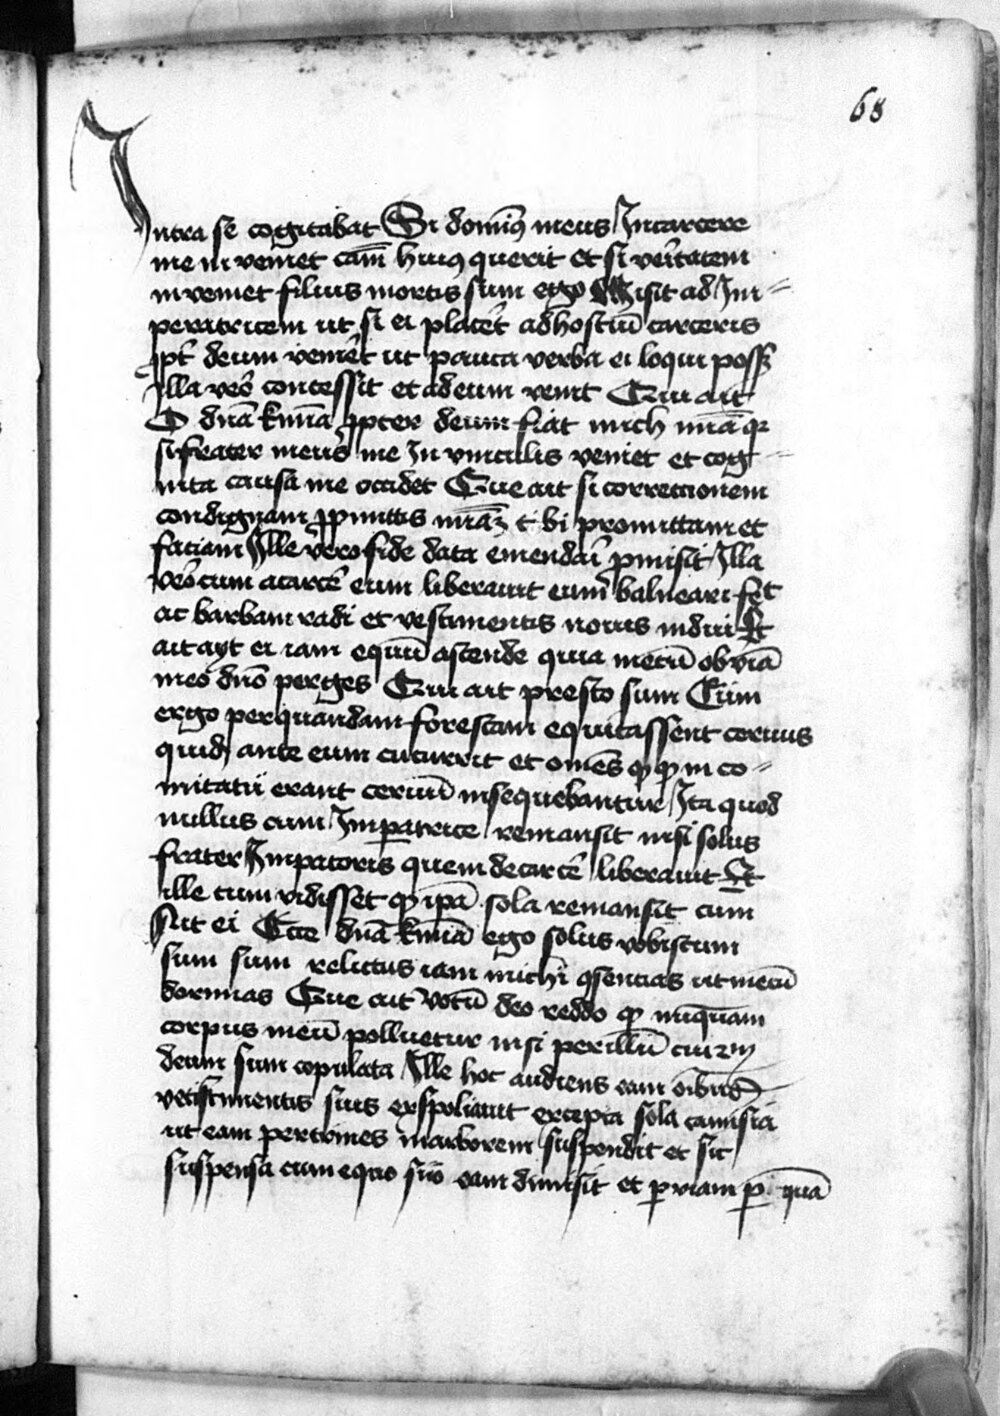 68
Intra se cogitabat Si dominus meus Incarcere
me in veniet cam̄ huius querit et si veritatem
in veniet filius mortis sum ego Misit ad Im-
peratricem ut si ei placēt ad hostiū carceris
ppt̄ deum veniēt ut pauca verba ei loqui poss3
Illa veo concessit et ad eum venit Qui ait
O dn̄a km̄a ppter deum fiat mich mīa qz
si frater meus me In vinculis veniet et cog-
nita causa me occidet Que ait si correctionem
condignam ppmittis mīaz tibi promittam et
faciam Ille vero fide data emendaī pmisit Illa
veo cum a carcē eum liberavit eum balneari fec̄t
ac barbam radi et vestimentis novis indui Et
ait ayt ei iam equū ascende quia mecū obviā
meo dn̄o perges Qui ait presto sum Cum
ergo per quandam forestam equitassent cervus
quidā ante eum cucurrit et om̄es qui in co-
mitatu erant cervū insequebantur Ita quod
nullus cum Impatrice remansit nisi solus
frater Impatoris quem de carcē liberavit Et
ille cum vidisset qp ipa sola remansit cum
Ait ei Ecce dn̄a km̄a ego solus vobiscum
sum sum relictus iam michi qsencias ut mecū
dormias Que ait votū deo reddo qp nuquam
corpus meū polluetur nisi per illū cui
deum sum copulata Ille hoc audiens eam oībus
vestimentis suis exspoliavit excepta sola camisia
ut eam per crines in arborem suspendit et sic
suspensa cum equo suo eam dimisit et p viam p quā